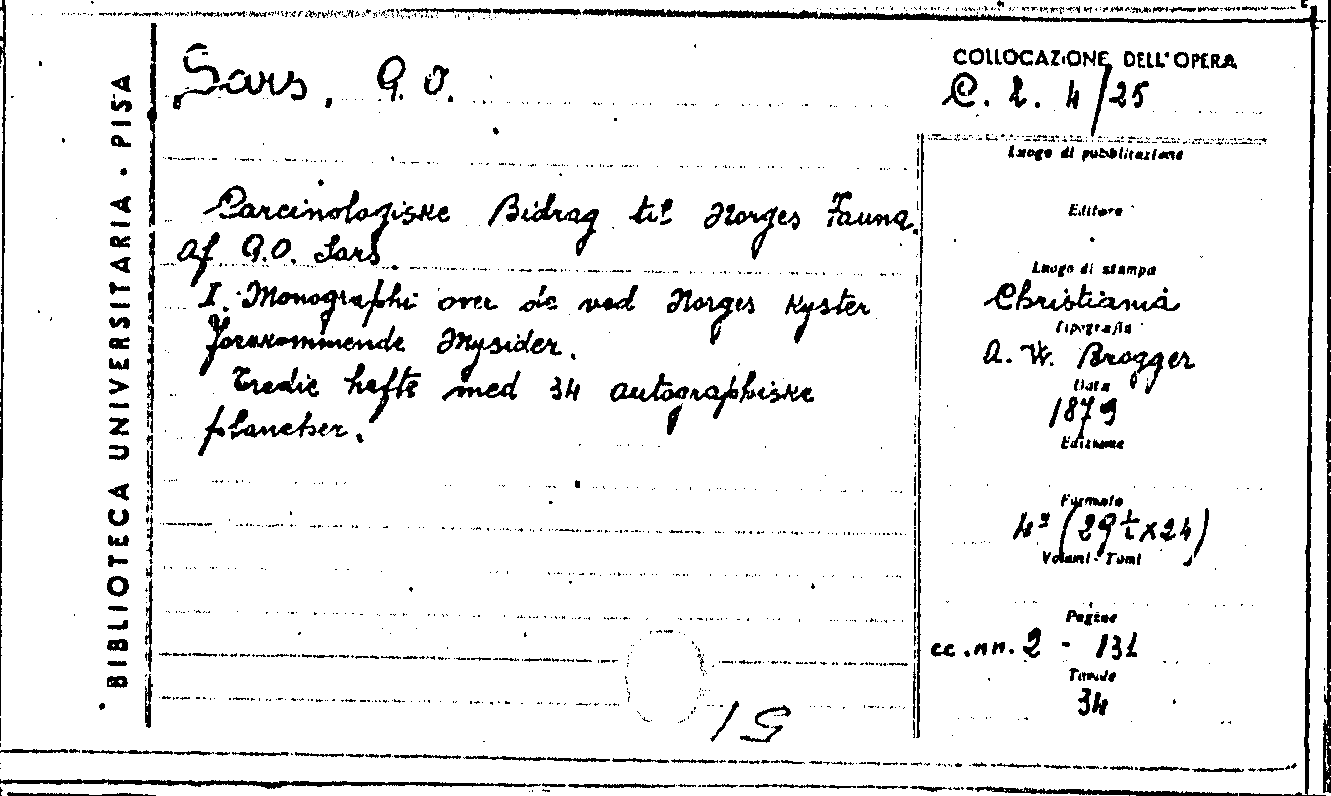 BIBLIOTECA UNIVERSITARIA · PISA
Sars, G. O.
Carcinologiske Bidrag til Norges Fauna.
af G.O. Sars.
I. Monographi over de ved Norges Kyster
forekommende Mysider.
Tredie hefte med 34 autographiske
plancher.
COLLOCAZIONE DELL'OPERA
C. 2. 4/25
Luogo di pubblicazione
Editore
Luogo di stampa
Christiania
Tipografia
A. W. Brøgger
Data
1879
Edizione
Formato
4º (29½x24)
Volumi - Tomi
Pagine
cc.nn. 2 - 131
Tavole
34